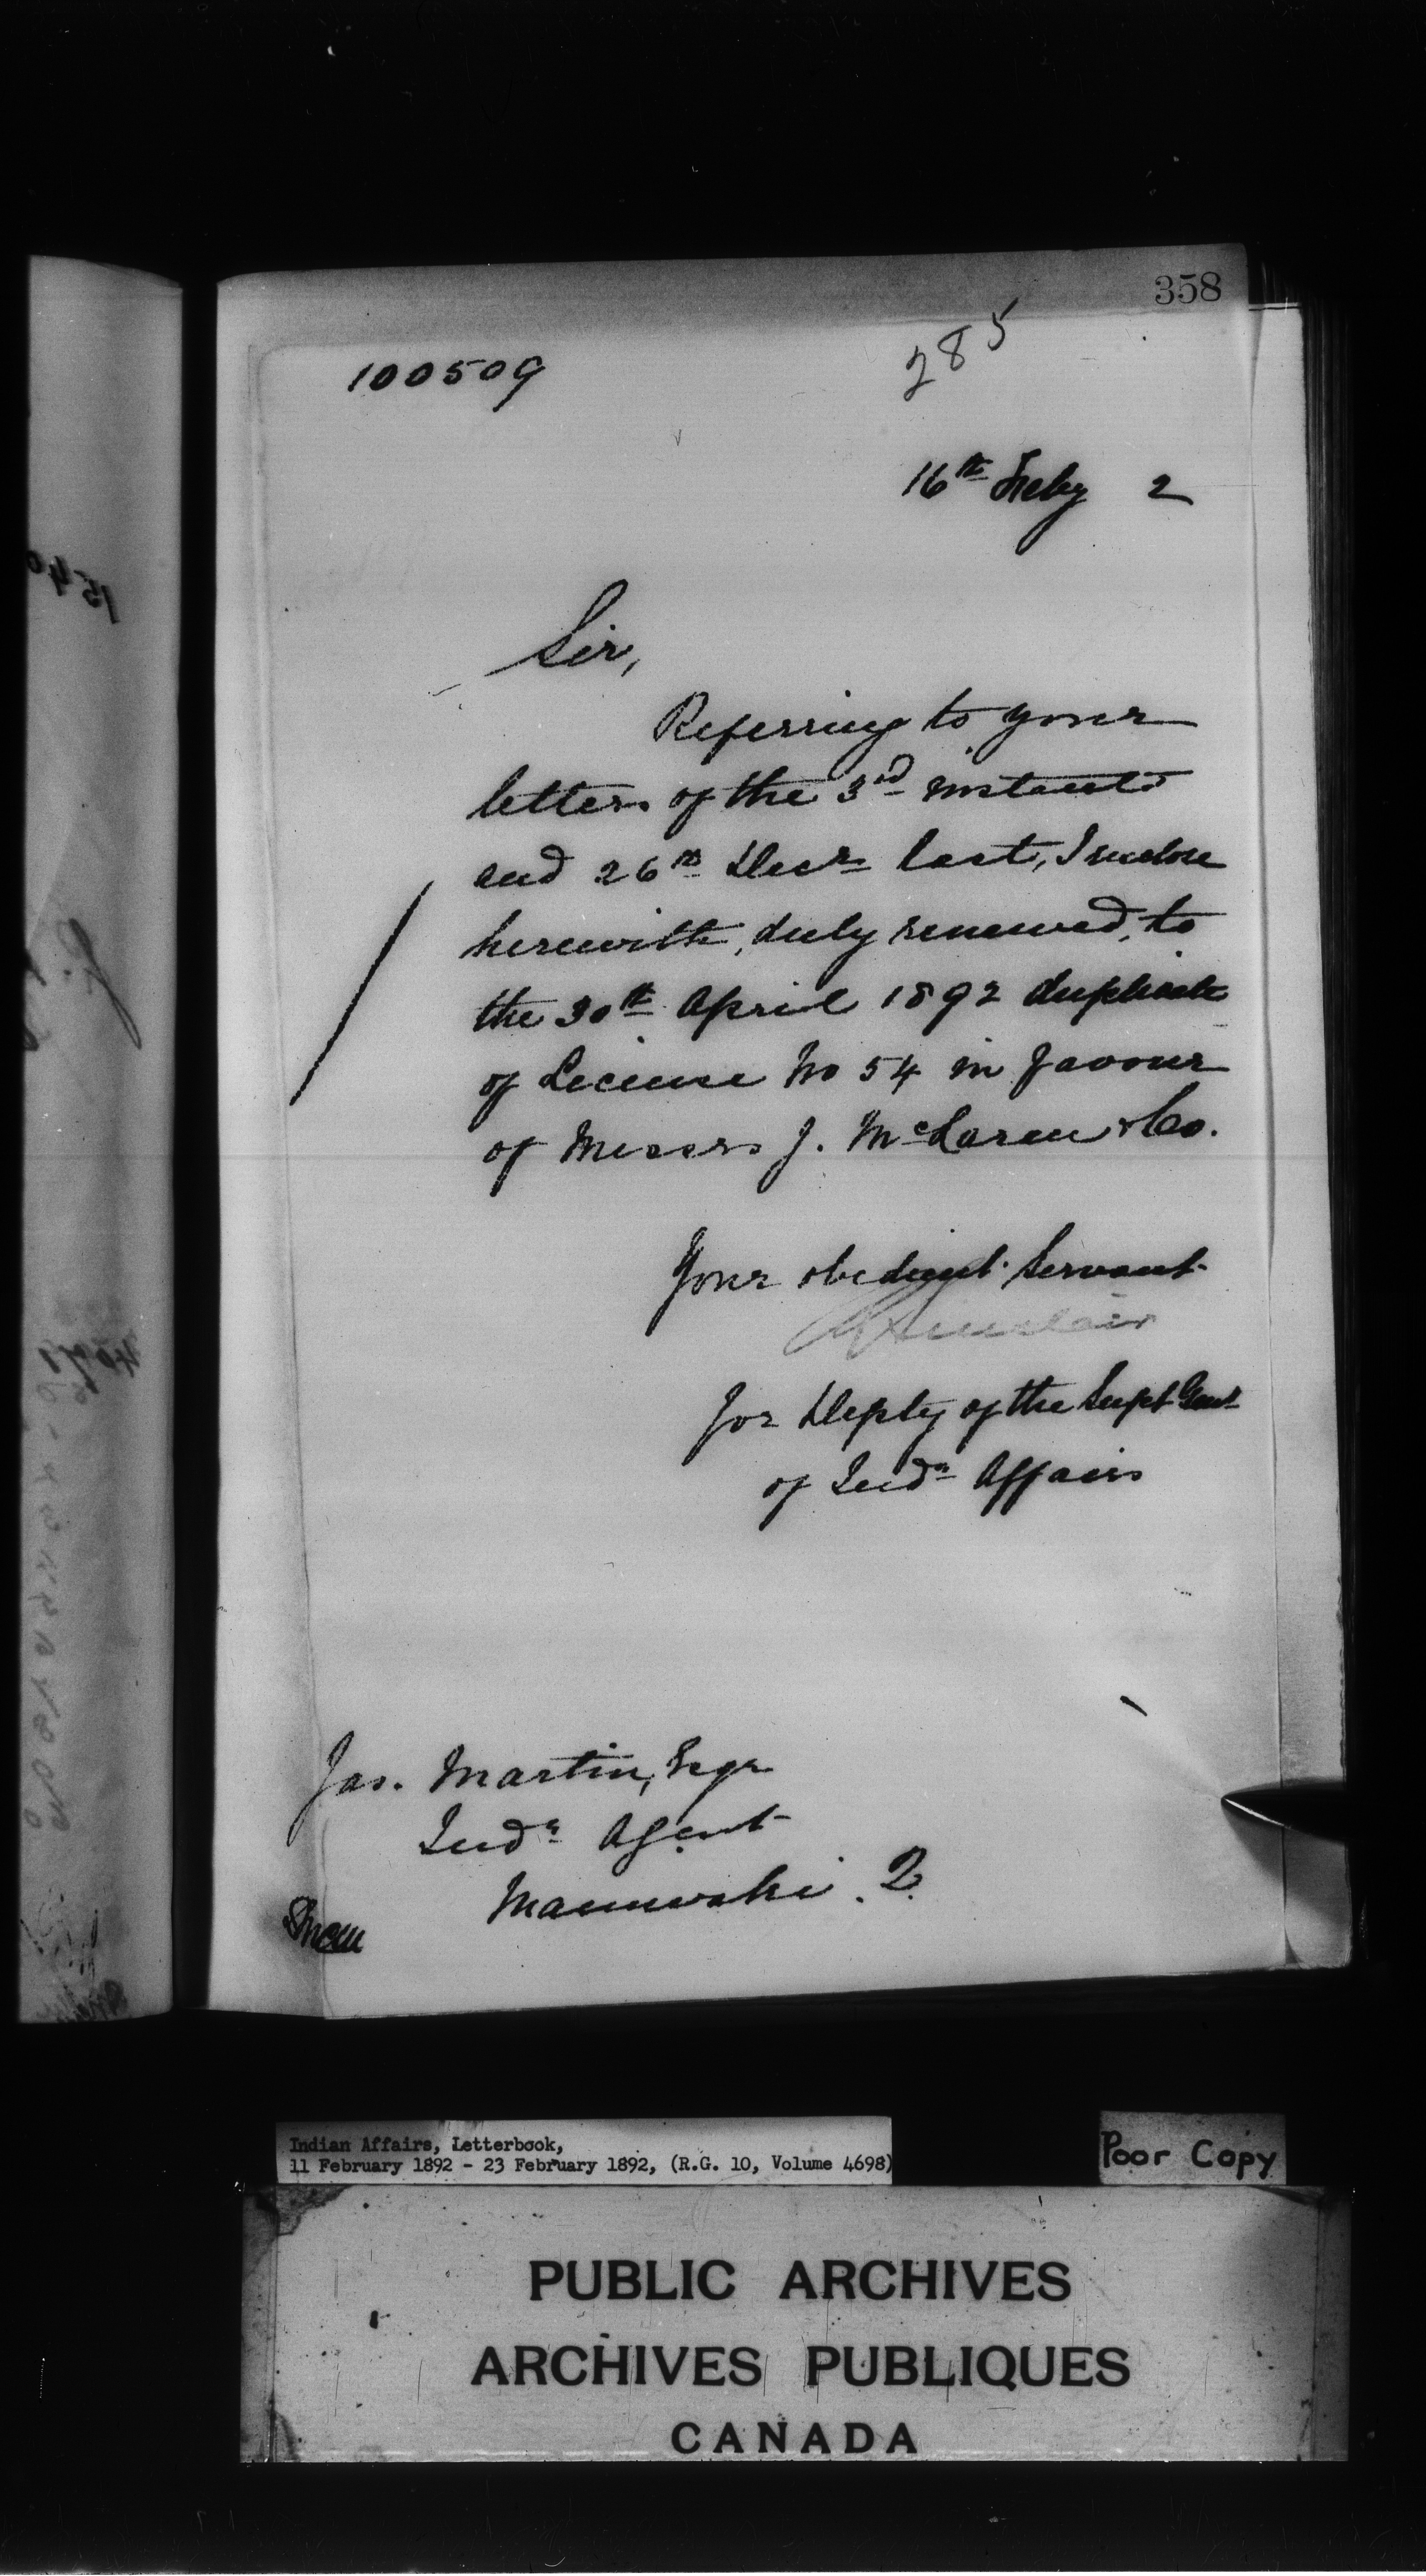 358
285
100509
16th Feby 2
Sir,
Referring to your
letters of the 3rd instant
and 26th Decr last, I enclose
herewith, duly renewed, to
the 30th April 1892 duplicate
of License No 54 in favour
of Messrs J. McLaren & Co.
Your obedient Servant
Sinclair
for Depty of the Supt Genl
of Indn Affairs
Jas. Martin, Esqr
Indn Agent
Maniwaki. Q.
Indian Affairs, Letterbook,
11 February 1892 - 23 February 1892, (R.G. 10, Volume 4698)
Poor Copy
PUBLIC ARCHIVES
ARCHIVES PUBLIQUES
CANADA